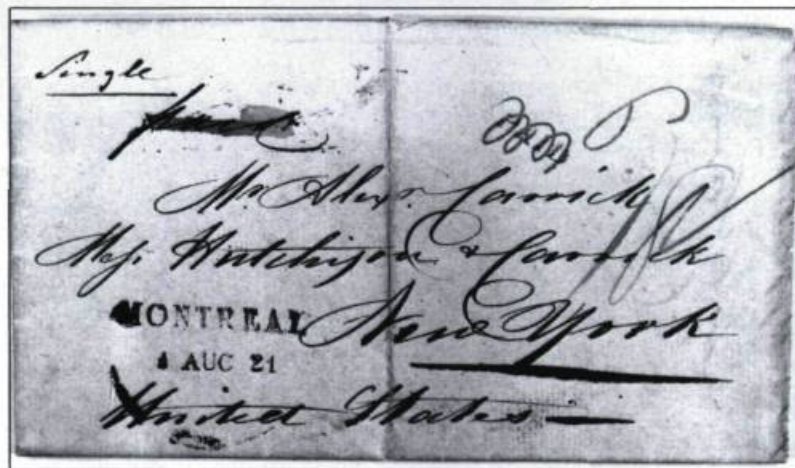 Single
Mr. Alexr. Carrick
Messrs. Hutchison & Carrick
MONTREAL
New York
AUC 21
United States